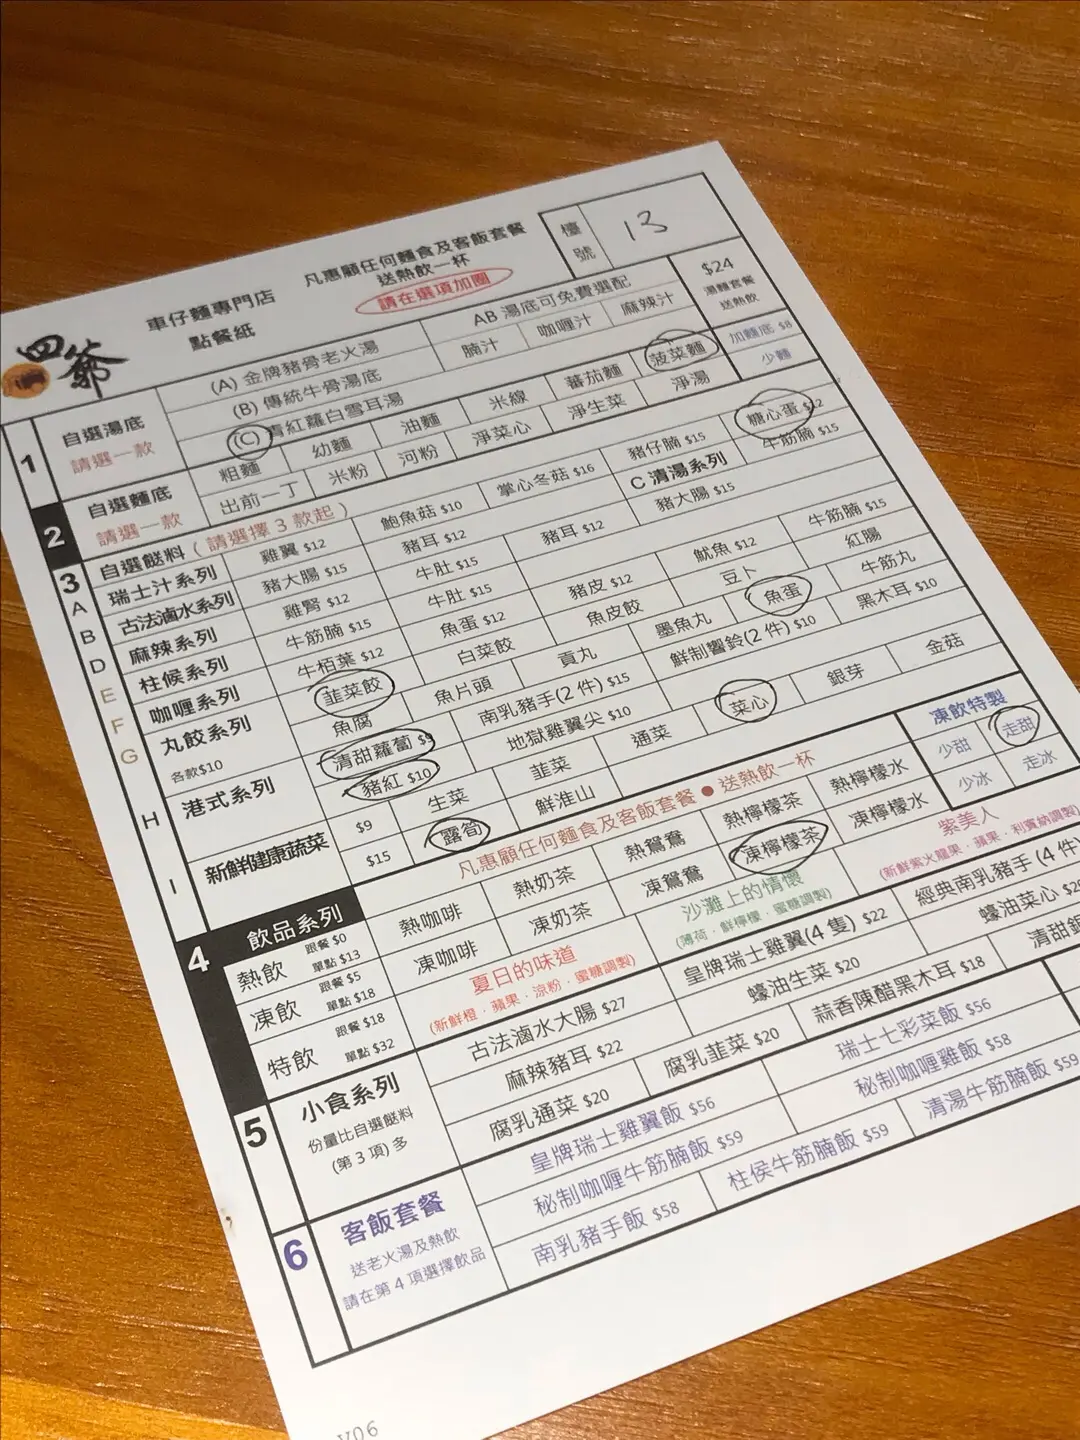 四爺
車仔麵專門店
點餐紙
凡惠顧任何麵食及客飯套餐
送熱飲一杯
請在選項加圈
檯號
13
1
自選湯底
請選一款
(A) 金牌豬骨老火湯
(B) 傳統牛骨湯底
(C) 青紅蘿白雪耳湯
AB 湯底可免費選配
腩汁 咖喱汁 麻辣汁
$24
湯麵套餐
送熱飲
2
自選麵底
請選一款
粗麵 幼麵 油麵 米線 蕃茄麵 菠菜麵
出前一丁 米粉 河粉 淨菜心 淨生菜 淨湯
加麵底 $8
少麵
3
自選餸料 ( 請選擇 3 款起 )
A 瑞士汁系列 雞翼 $12 鮑魚菇 $10 掌心冬菇 $16 豬仔腩 $15 糖心蛋 $12
B 古法滷水系列 豬大腸 $15 豬耳 $12 C 清湯系列 牛筋腩 $15
D 麻辣系列 雞腎 $12 牛肚 $15 豬耳 $12 豬大腸 $15
E 柱候系列 牛筋腩 $15 牛肚 $15
F 咖喱系列 牛栢葉 $12 魚蛋 $12 豬皮 $12 魷魚 $12 牛筋腩 $15
G 丸餃系列
各款$10
韮菜餃 白菜餃 魚皮餃 豆卜 紅腸
魚腐 魚片頭 貢丸 墨魚丸 魚蛋 牛筋丸
H 港式系列
清甜蘿蔔 $9 南乳豬手(2 件) $15 鮮制響鈴(2 件) $10 黑木耳 $10
豬紅 $10 地獄雞翼尖 $10
I 新鮮健康蔬菜
$9 生菜 韮菜 通菜 菜心 銀芽 金菇
$15 露筍 鮮淮山
4
飲品系列
凡惠顧任何麵食及客飯套餐 ● 送熱飲一杯
凍飲特製
少甜 走甜
少冰 走冰
熱飲 跟餐 $0
單點 $13
熱咖啡 熱奶茶 熱鴛鴦 熱檸檬茶 熱檸檬水
凍飲 跟餐 $5
單點 $18
凍咖啡 凍奶茶 凍鴛鴦 凍檸檬茶 凍檸檬水
特飲 跟餐 $18
單點 $32
夏日的味道
(新鮮橙．蘋果．涼粉．蜜糖調製)
沙灘上的情懷
(薄荷．鮮檸檬．蜜糖調製)
紫美人
(新鮮紫火龍果．蘋果．利賓納調製)
5
小食系列
份量比自選餸料
(第 3 項) 多
古法滷水大腸 $27 皇牌瑞士雞翼(4 隻) $22 經典南乳豬手 (4 件)
麻辣豬耳 $22 蠔油生菜 $20 蠔油菜心
腐乳通菜 $20 腐乳韮菜 $20 蒜香陳醋黑木耳 $18 清甜
6
客飯套餐
送老火湯及熱飲
請在第 4 項選擇飲品
皇牌瑞士雞翼飯 $56 瑞士七彩菜飯 $56
秘制咖喱牛筋腩飯 $59 秘制咖喱雞飯 $58
南乳豬手飯 $58 柱侯牛筋腩飯 $59 清湯牛筋腩飯 $59
V06